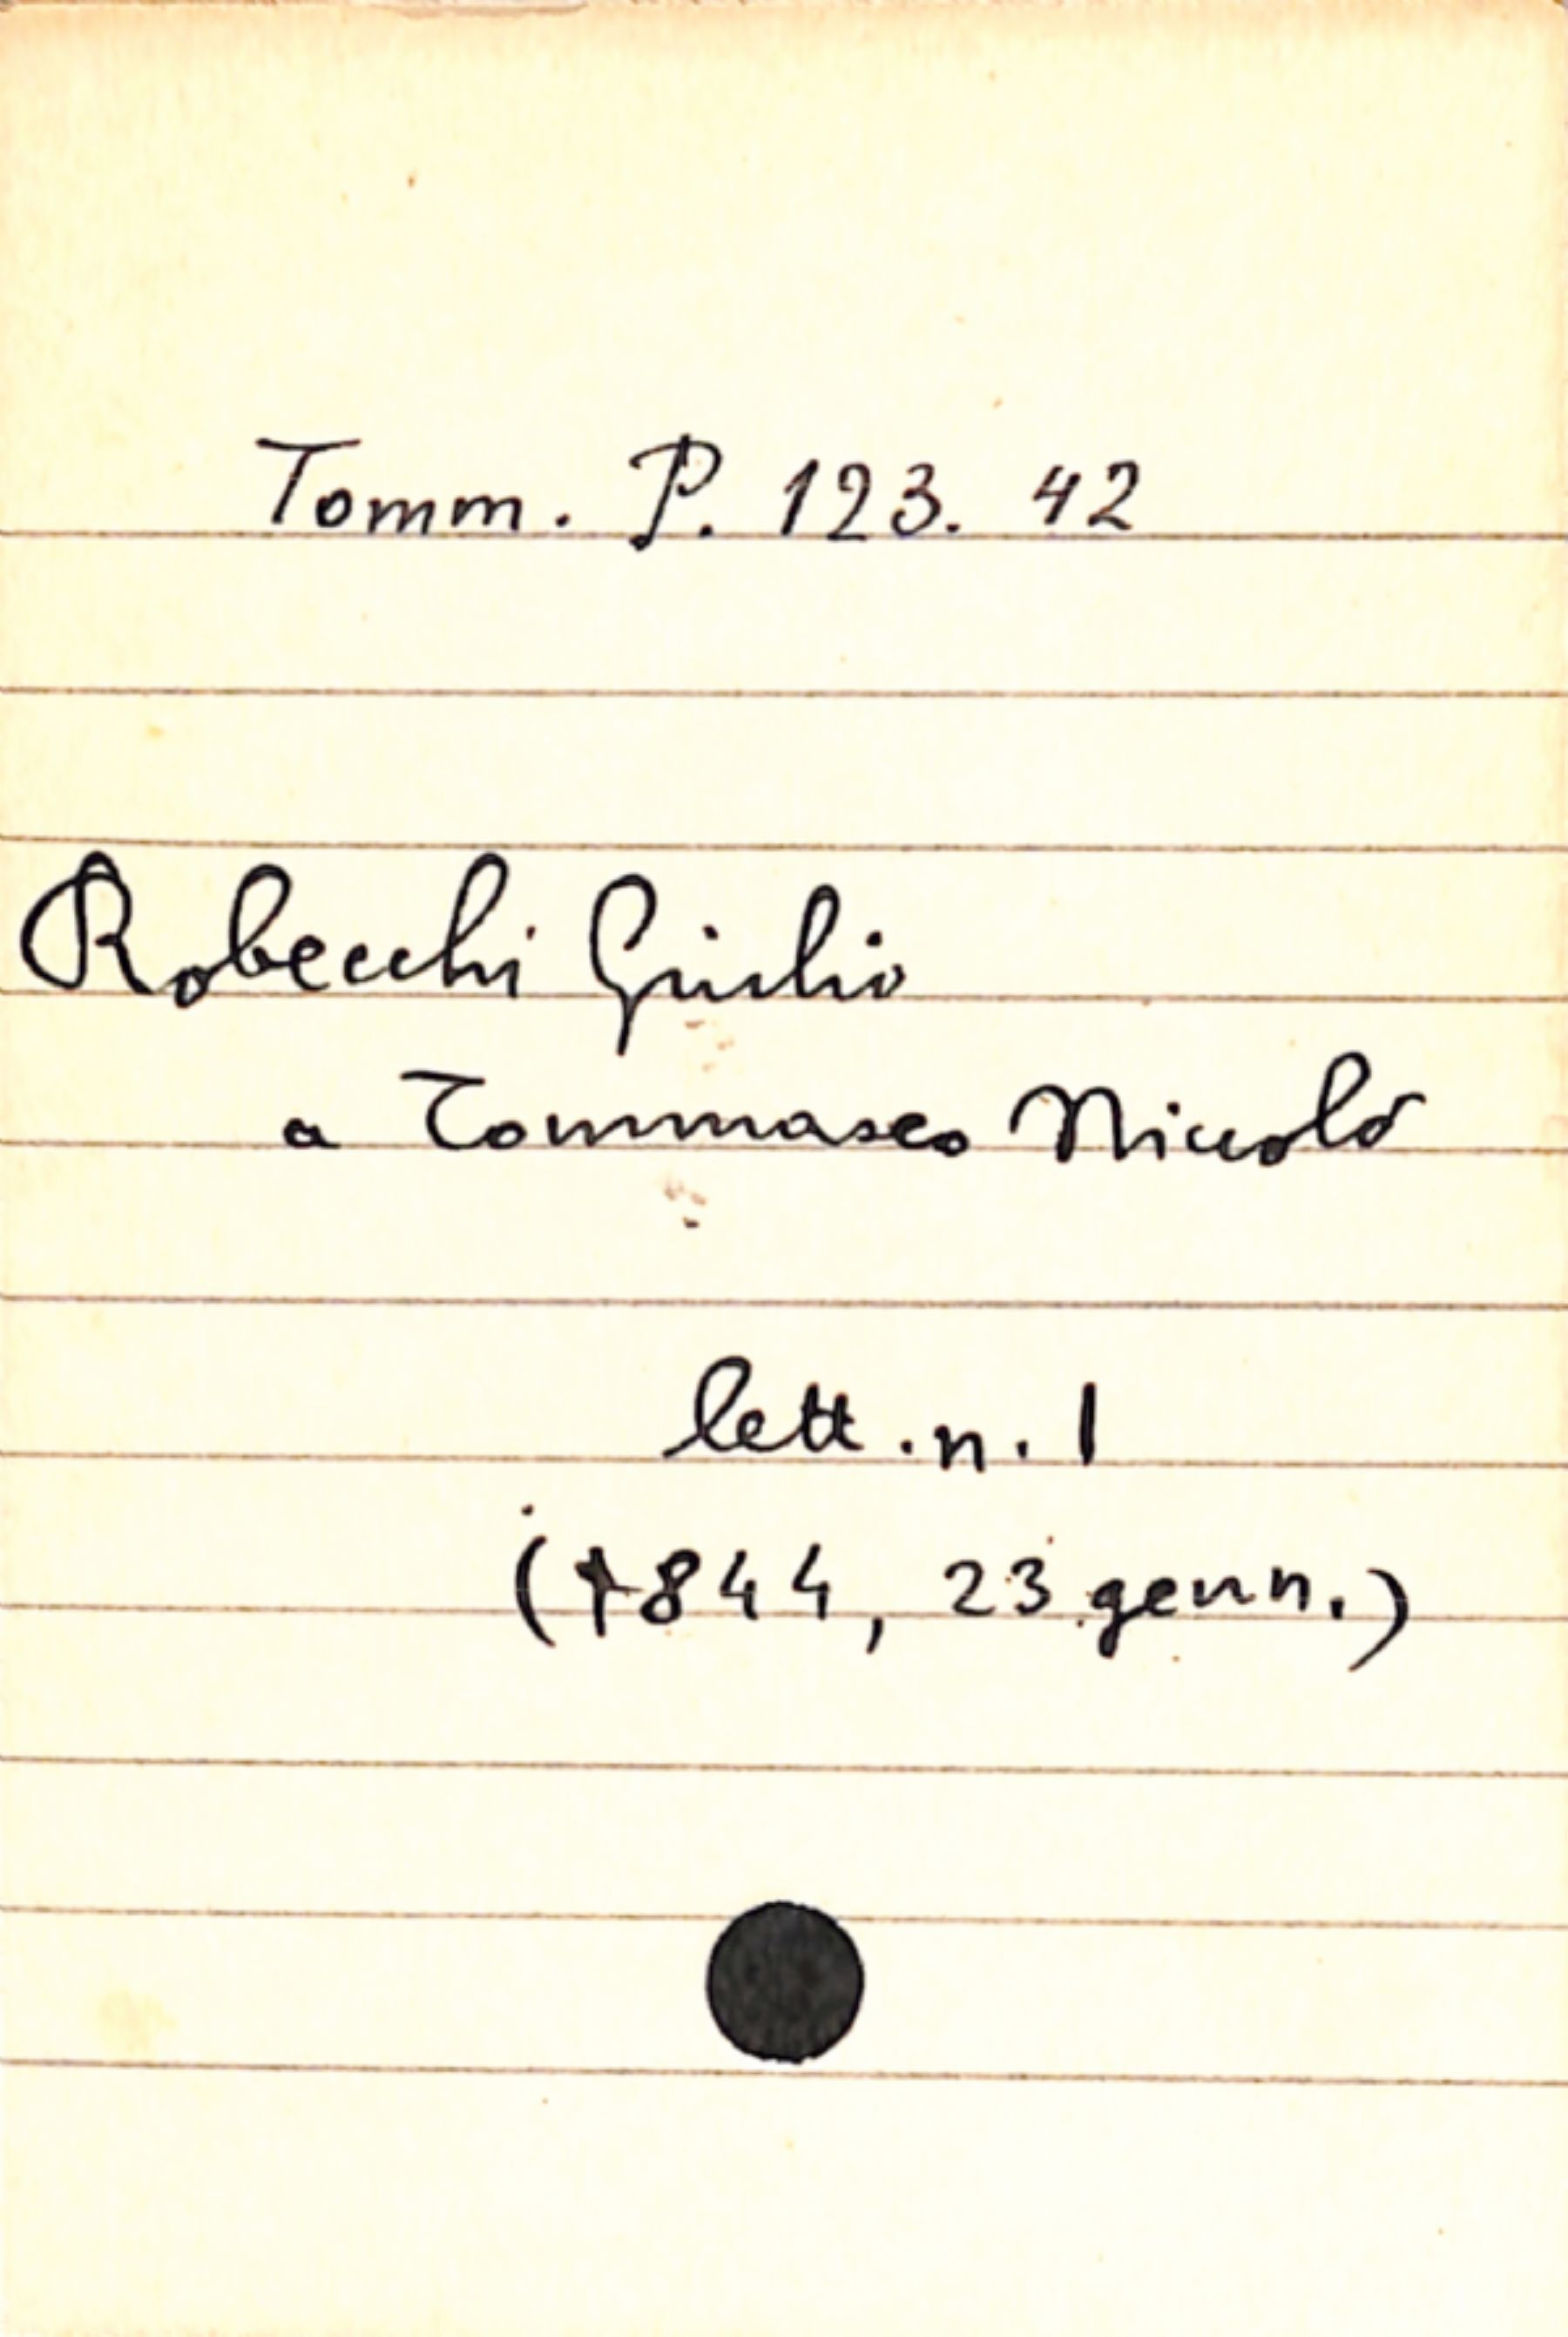 Tomm. P. 123. 42
Robecchi Giulio
a Tommaseo Niccolò
lett. n. 1
(1844, 23 genn.)